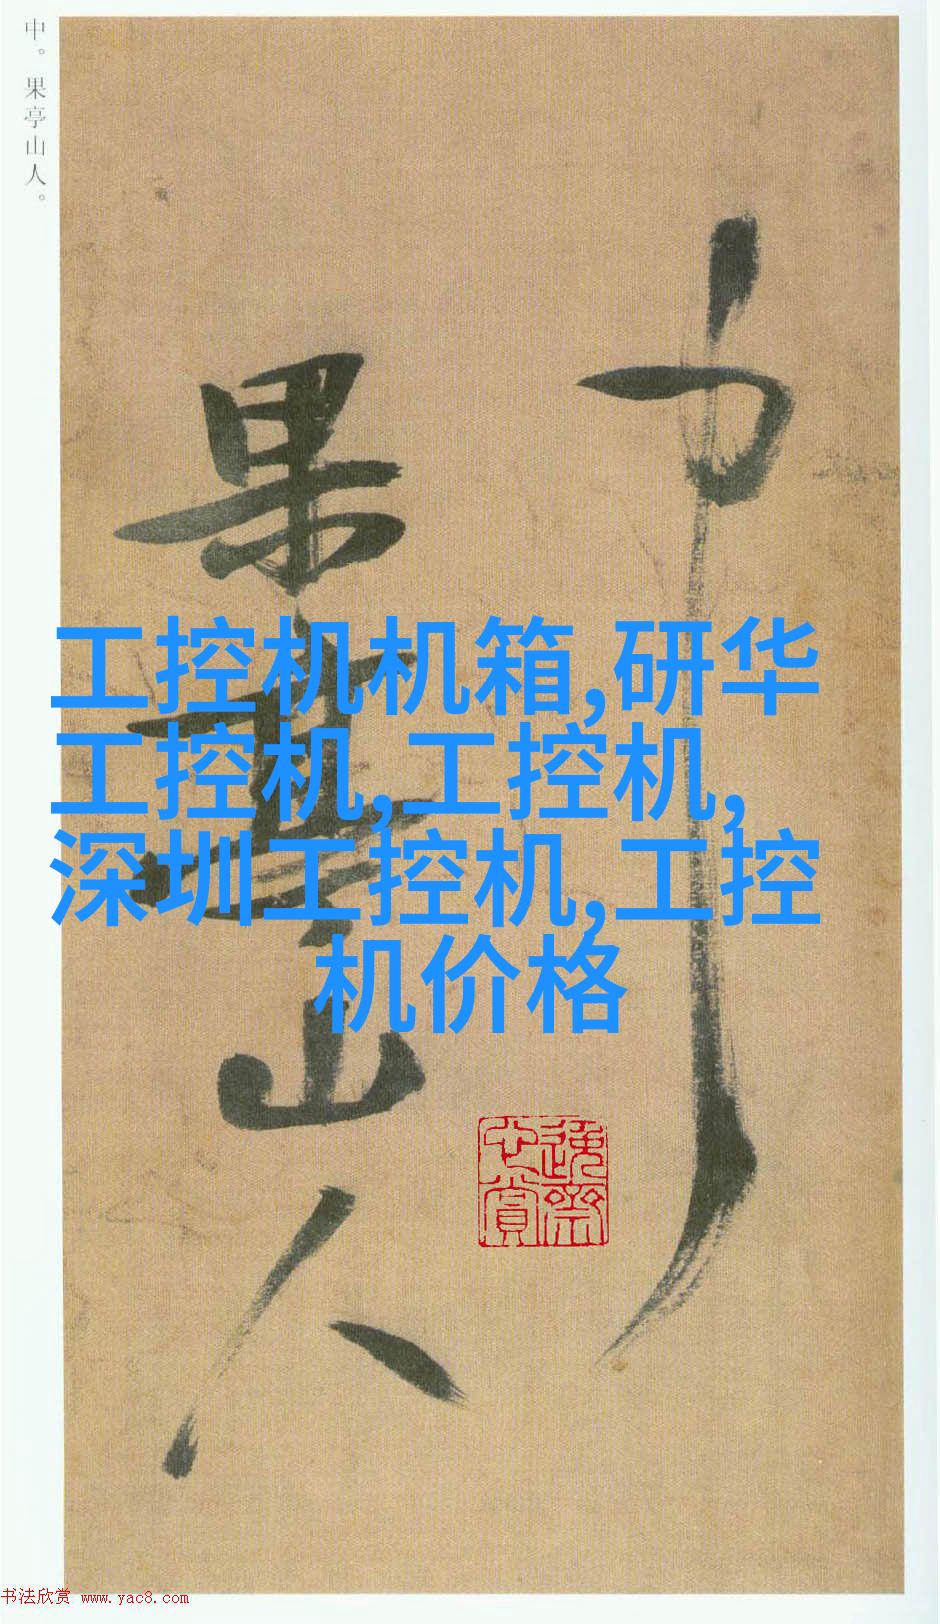 中。果亭山人。
中
果亭山人
工控机机箱,研华
工控机,工控机,
深圳工控机,工控
机价格
逸斋
心赏
书法欣赏 www.yac8.com